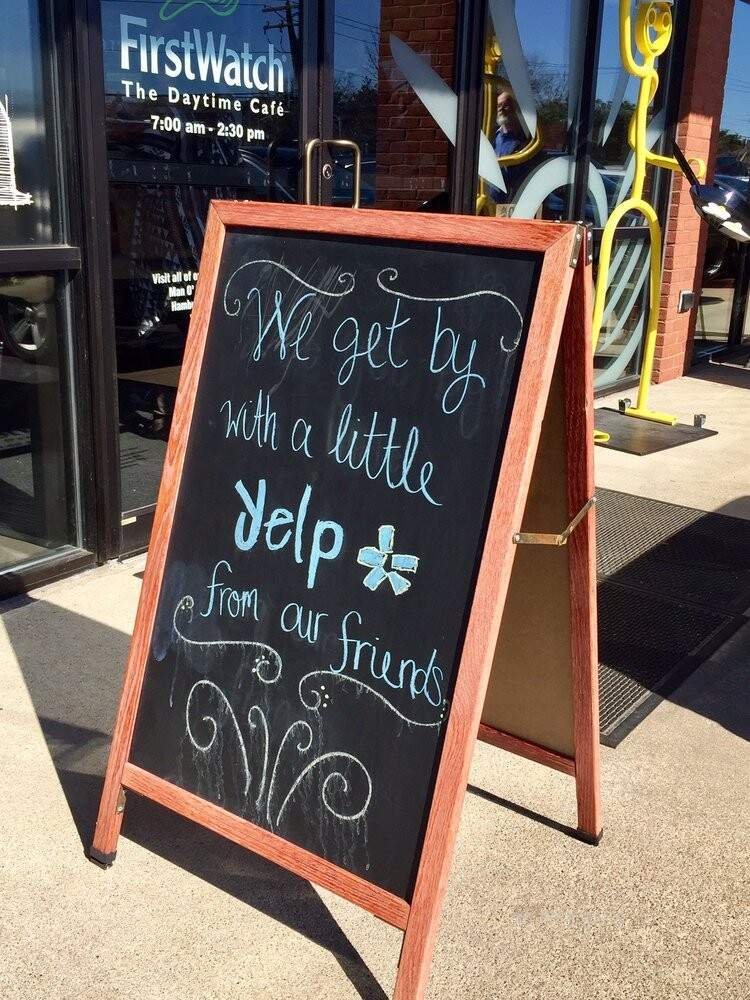 FirstWatch
The Daytime Café
7:00 am - 2:30 pm
Visit all of
Man O'
Hambu
We get by
with a little
Yelp
from our
friends